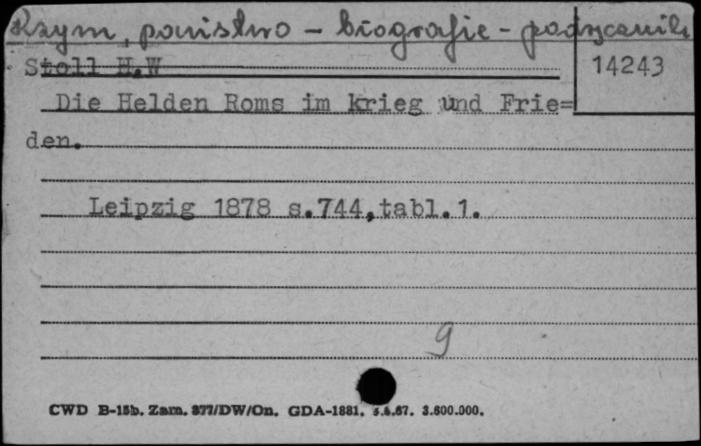 Rzym, państwo - biografie - podręcznik
Stoll H.W
14243
Die Helden Roms im krieg und Frie=
den.
Leipzig 1878 s.744,tabl.1.
9
CWD B-15b. Zam. 877/DW/On. GDA-1881. 5.6.67. 3.600.000.